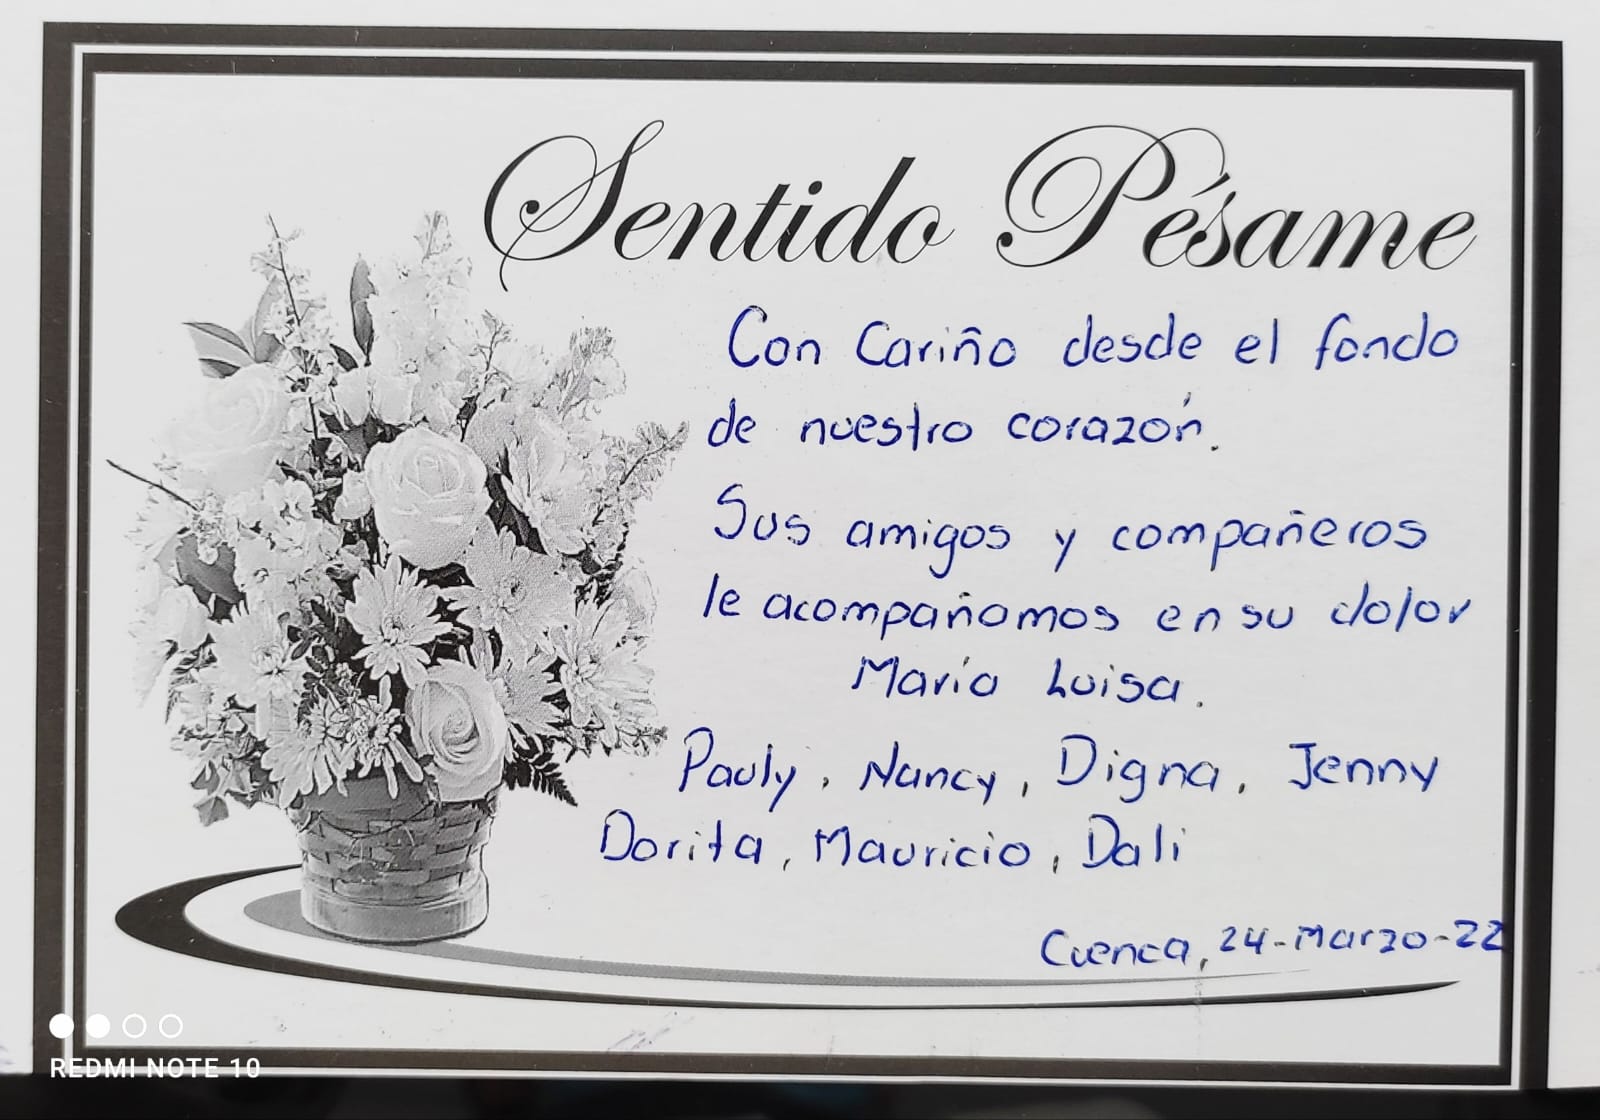 Sentido Pésame
Con Cariño desde el fondo
de nuestro corazón.
Sus amigos y compañeros
le acompañamos en su dolor
María Luisa.
Pauly, Nancy, Digna, Jenny
Dorita, Mauricio, Dali
Cuenca, 24-Marzo-22
REDMI NOTE 10